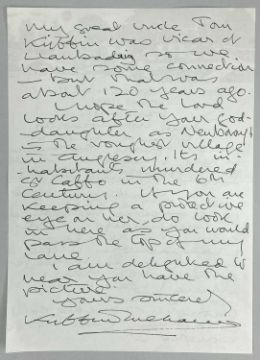 My great uncle Tom
Kyffin was vicar of
Llanbadrig so we
have some connection
— but that was
about 120 years ago.
I hope the Lord
looks after your god-
daughter as Newborough
is the roughest village
in Anglesey. Its in-
habitants murdered
St Caffo in the 6th
Century. If you are
keeping a protective
eye on her do look
in here as you would
pass the top of my
lane
I am delighted to
hear you have the
picture
Yours sincerely
Kyffin Williams